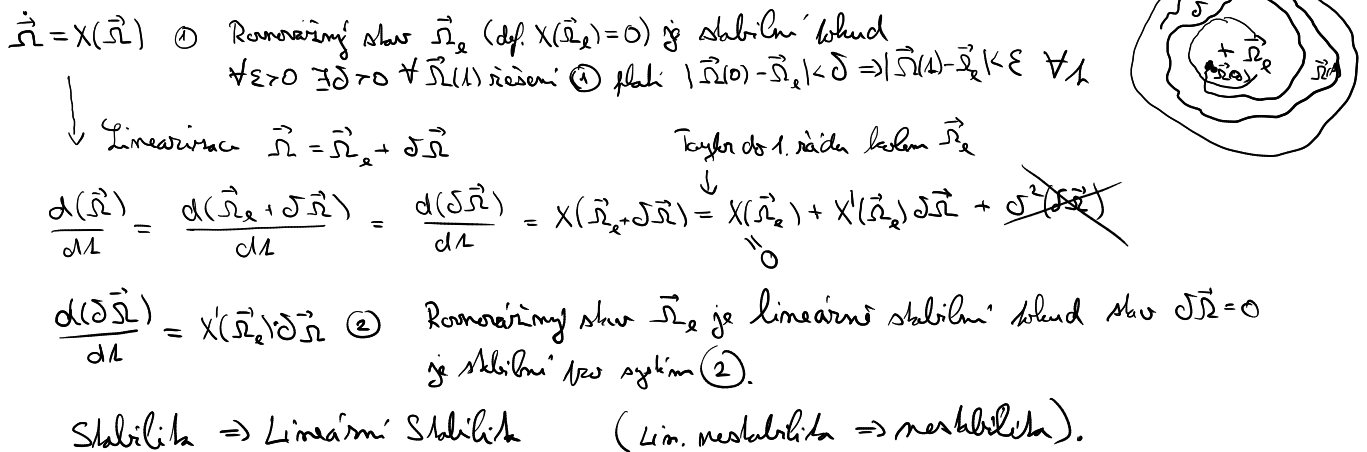 $\dot{\vec{\Omega}} = X(\vec{\Omega})$ ① Rovnovážný stav $\vec{\Omega}_e$ (def. $X(\vec{\Omega}_e)=0$) je stabilní pokud
$\forall \varepsilon>0\ \exists \delta>0\ \forall \vec{\Omega}(t)$ řešení ① platí $|\vec{\Omega}(0)-\vec{\Omega}_e|<\delta \Rightarrow |\vec{\Omega}(t)-\vec{\Omega}_e|<\varepsilon\ \forall t$
δ + $\vec{\Omega}_e$ $\vec{\Omega}(0)$
Linearizace $\vec{\Omega} = \vec{\Omega}_e + \delta\vec{\Omega}$
Taylor do 1. řádu kolem $\vec{\Omega}_e$
$\frac{d(\vec{\Omega})}{dt} = \frac{d(\vec{\Omega}_e + \delta\vec{\Omega})}{dt} = \frac{d(\delta\vec{\Omega})}{dt} = X(\vec{\Omega}_e + \delta\vec{\Omega}) = X(\vec{\Omega}_e) + X'(\vec{\Omega}_e)\delta\vec{\Omega} + \delta^2(\delta\vec{\Omega})$
= 0
$\frac{d(\delta\vec{\Omega})}{dt} = X'(\vec{\Omega}_e)\cdot\delta\vec{\Omega}$ ② Rovnovážný stav $\vec{\Omega}_e$ je lineárně stabilní pokud stav $\delta\vec{\Omega}=0$
je stabilní pro systém ②.
Stabilita ⇒ Lineární Stabilita (Lin. nestabilita ⇒ nestabilita).